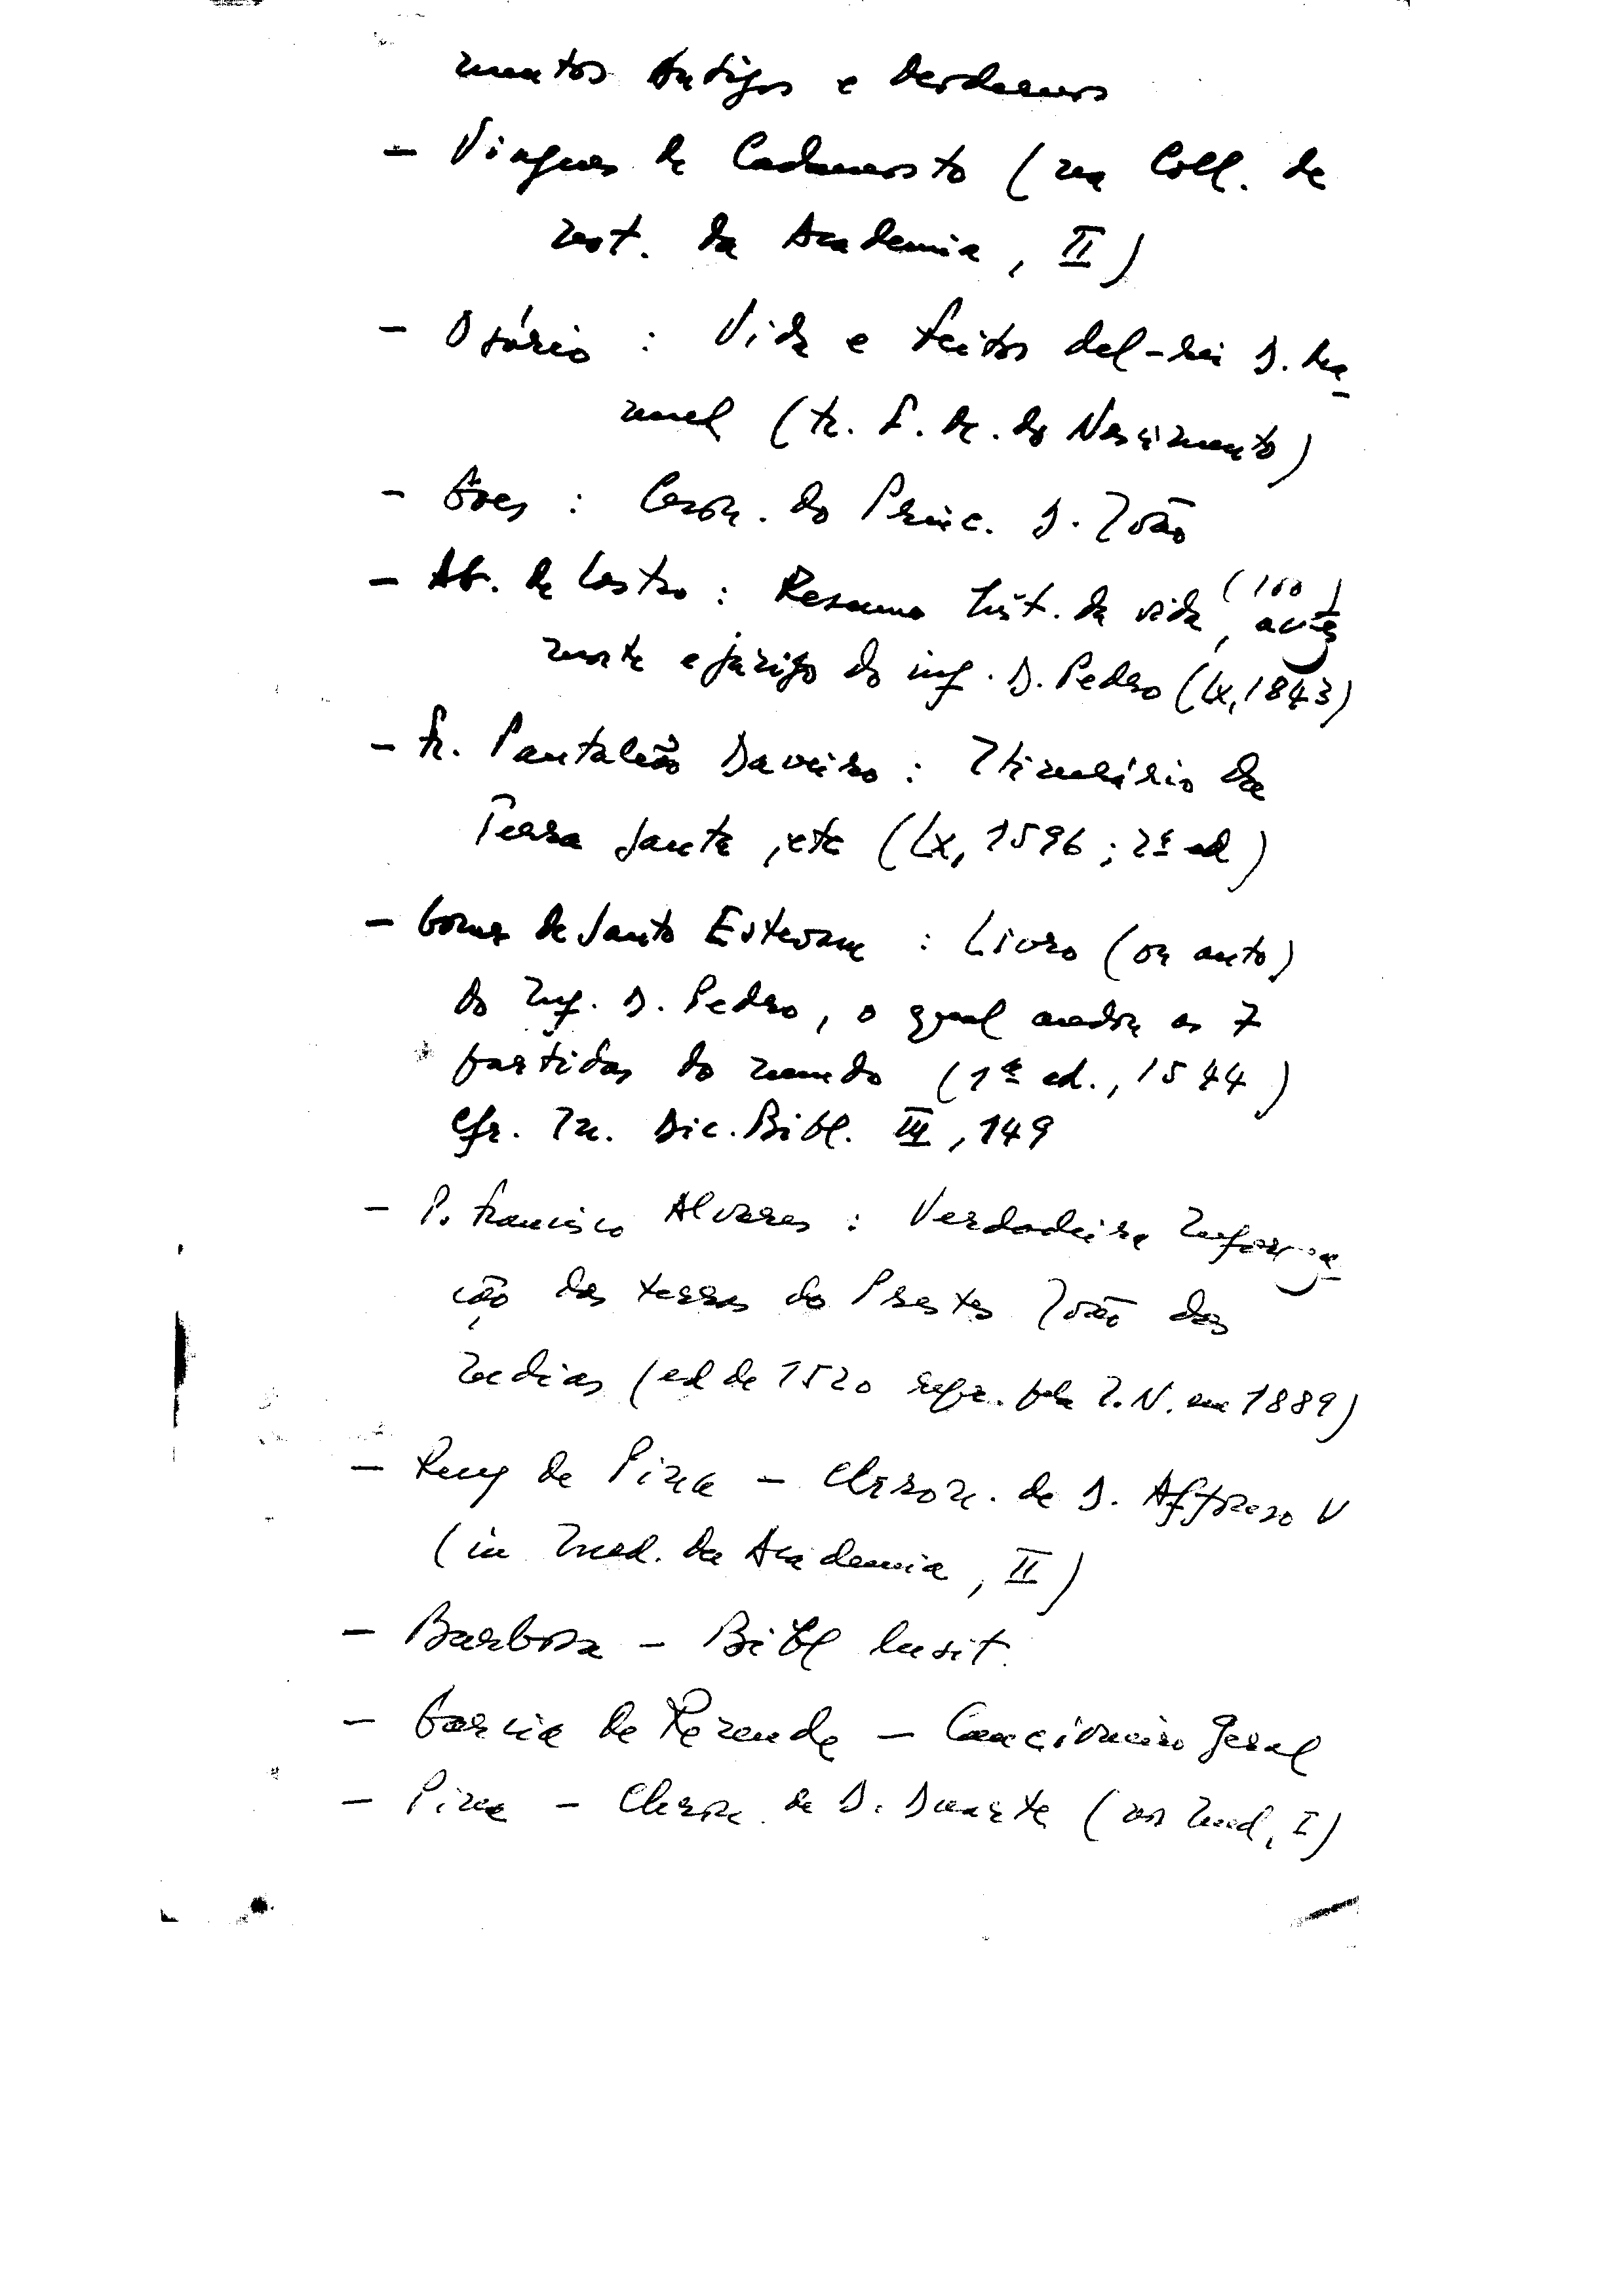 mentos Antigos e Modernos
– Viagens de Cadamosto (na Coll. de
not. da Academia, II)
– Osório : Vida e feitos del-rei D. Ma-
nuel (tr. F. M. do Nascimento)
– Góes : Cron. do Princ. D. João
– Ab. de Castro : Resumo hist. da vida, acções (100)
morte e jazigo do inf. D. Pedro (Lx, 1843)
– Fr. Pantaleão Daveiro : Itinerário da
Terra Santa, etc (Lx, 1596 ; 2ª ed)
– Gomes de Santo Estevam : Livro (ou auto)
do Inf. D. Pedro, o qual andou as 7
partidas do mundo (1ª ed., 1544)
Cfr. In. Dic. Bibl. III, 149
– P. Francisco Alvares : Verdadeira Informa-
ção das terras do Prestes João das
Indias (ed de 1520 repr. pela I. N. em 1889)
– Ruy de Pina – Chron. de D. Affonso V
(in Ined. da Academia, II)
– Barbosa – Bibl lusit.
– Garcia de Rezende – Cancioneiro geral
– Pina – Chron. de D. Duarte (nos Ined, I)